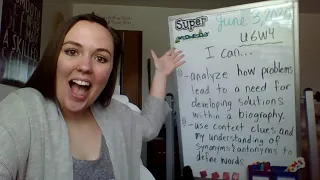 Super
June 3, 2020
U6W4
I can...
- analyze how problems
lead to a need for
developing solutions
within a biography.
- use context clues and
my understanding of
synonyms & antonyms to
define words